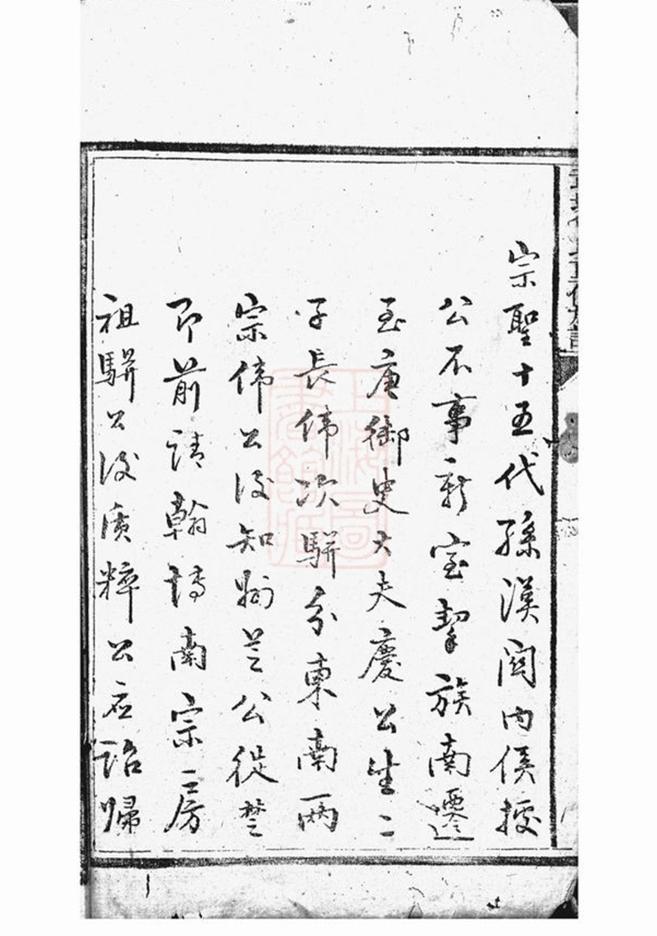 宗聖十五代孫漢関内侯據
公不事新室挈族南遷
至唐御史大夫慶公生二
子長偉次駢分東南兩
宗偉公後知州芝公從楚
即前請翰博南宗三房
祖駢公後廣粹公應詔歸